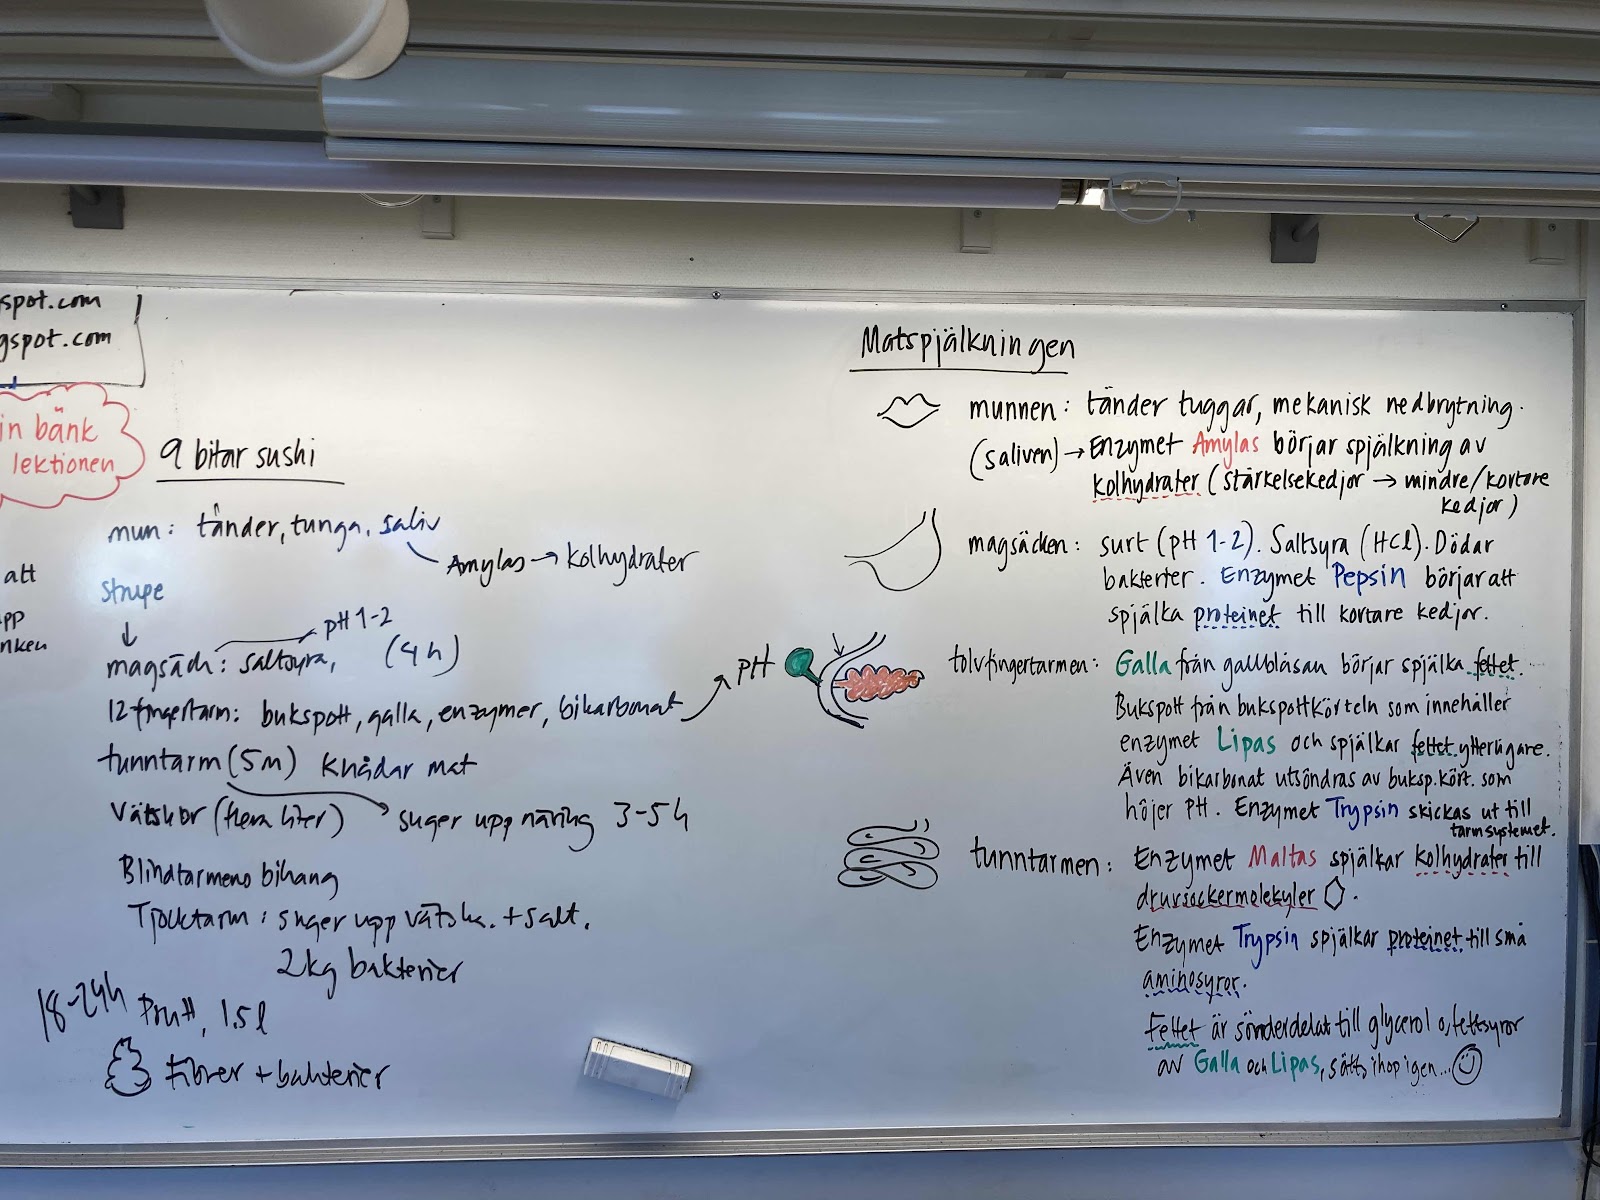 spot.com
gspot.com
in bänk
lektionen
att
pp
nken
9 bitar sushi
mun: tänder, tunga, saliv
Amylas → kolhydrater
Strupe
↓
pH 1-2
magsäck: saltsyra, (4h)
12fingertarm: bukspott, galla, enzymer, bikarbonat → pH
tunntarm (5m) knådar mat
Vätskor (flera liter) → suger upp näring 3-5 h
Blindtarmens bihang
Tjocktarm: suger upp vätska. + salt.
2kg bakterier
18-24h Prutt, 1.5 l
Fibrer + bakterier
Matspjälkningen
munnen: tänder tuggar, mekanisk nedbrytning.
(saliven) → Enzymet Amylas börjar spjälkning av
kolhydrater (stärkelsekedjor → mindre/kortare
kedjor)
magsäcken: surt (pH 1-2). Saltsyra (HCl). Dödar
bakterier. Enzymet Pepsin börjar att
spjälka proteinet till kortare kedjor.
tolvfingertarmen: Galla från gallblåsan börjar spjälka fettet.
Bukspott från bukspottkörteln som innehåller
enzymet Lipas och spjälkar fettet ytterligare.
Även bikarbonat utsöndras av buksp.kört. som
höjer pH. Enzymet Trypsin skickas ut till
tarmsystemet.
tunntarmen: Enzymet Maltas spjälkar kolhydrater till
druvsockermolekyler.
Enzymet Trypsin spjälkar proteinet till små
aminosyror.
Fettet är sönderdelat till glycerol o, fettsyror
av Galla och Lipas, sätts ihop igen...